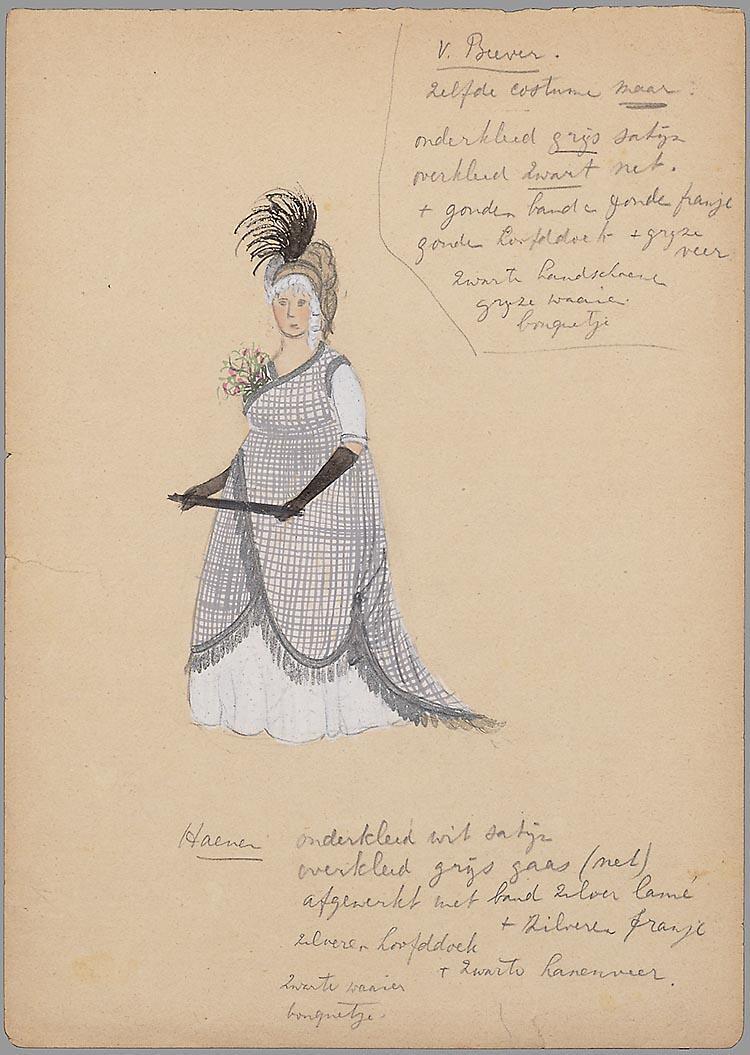 V. Bever.
zelfde costume maar:
onderkleed grijs satijn
overkleed zwart net.
+ gouden band & gouden franje
gouden hoofddoek + gryze
veer
zwarte handschoene
gryze waaier
bouquetje
Haenen
onderkleed wit satijn
overkleed grijs gaas (net)
afgewerkt met band zilver lamé
+ zilveren franje
zilveren hoofddoek
+ zwarte hanenveer.
zwarte waaier
bouquetje.